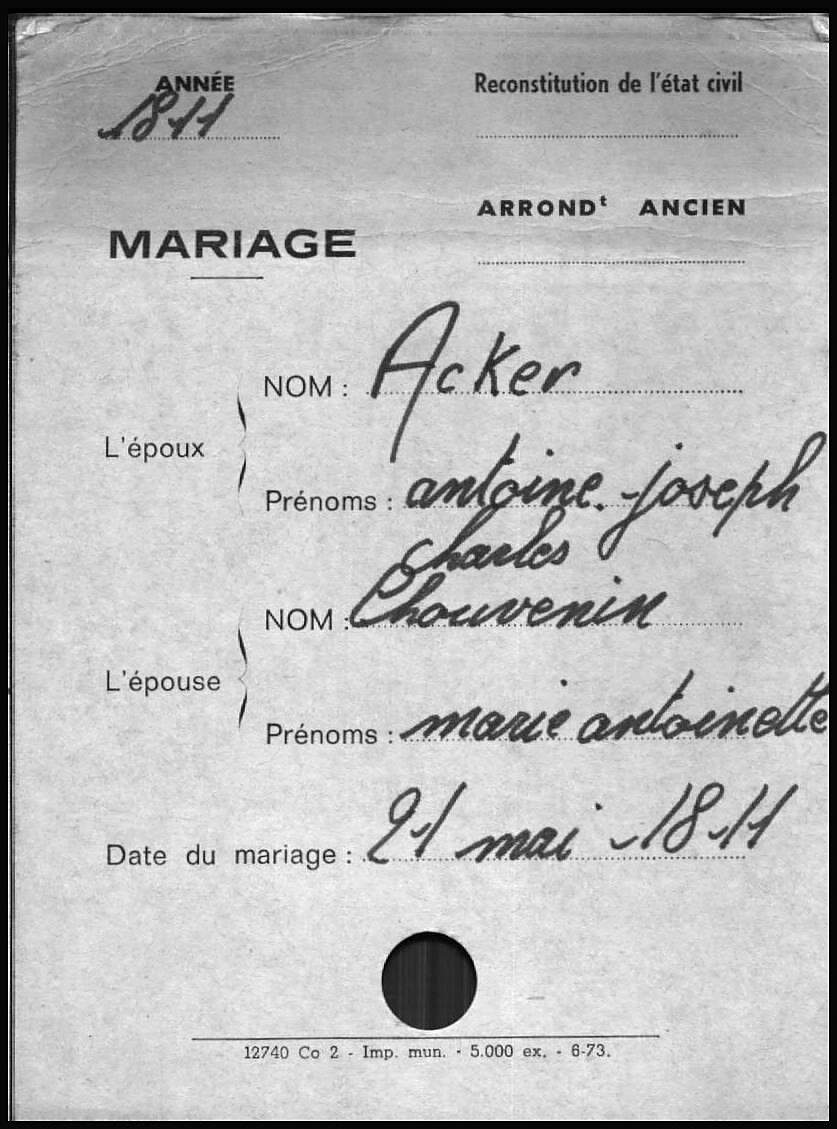 ANNÉE
1811
Reconstitution de l'état civil
ARRONDᵗ ANCIEN
MARIAGE
L'époux
NOM : Acker
Prénoms : antoine-joseph
charles
L'épouse
NOM : Chouvenin
Prénoms : marie antoinette
Date du mariage : 21 mai 1811
12740 Co 2 - Imp. mun. - 5.000 ex. - 6-73.